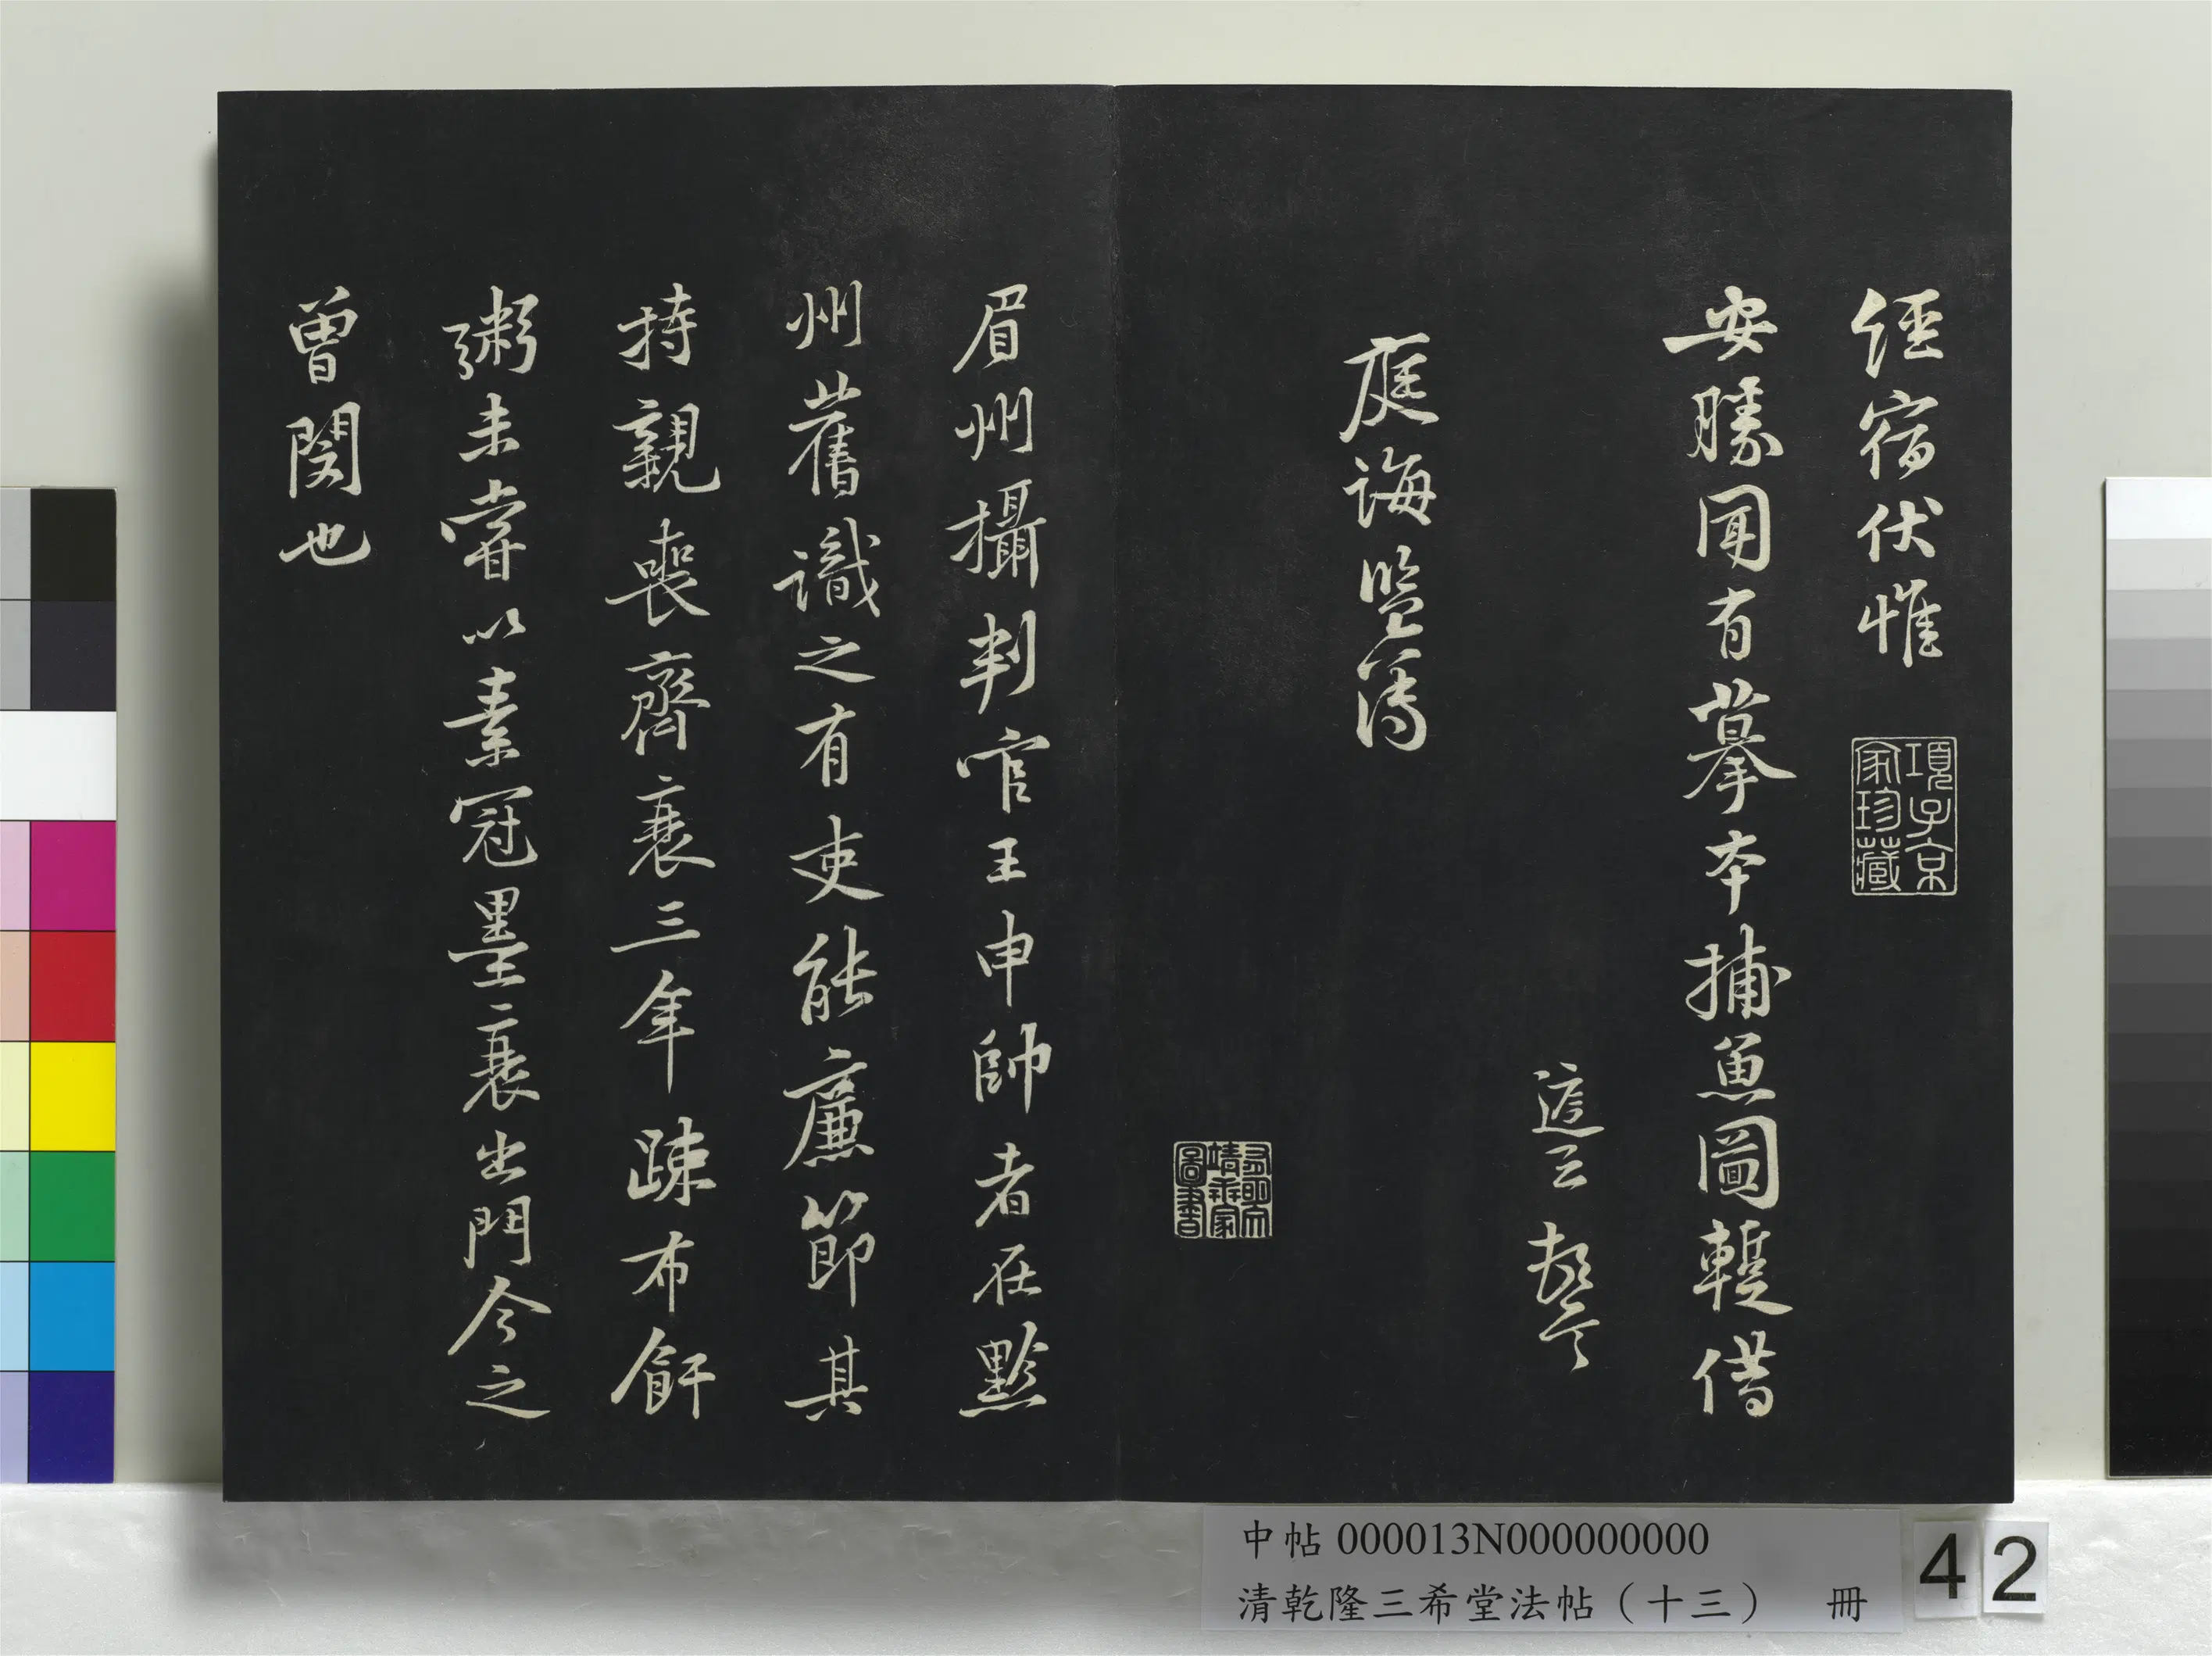 經宿伏惟
項子京家珍藏
安勝聞有摹本捕魚圖蹔借
庭誨監簿
眉州攝判官王申帥者在黔
州舊識之有吏能廉節其
持親喪齊衰三年疎布飦
粥未嘗以素冠墨衰出門今之
曾閔也
中帖 000013N000000000
清乾隆三希堂法帖（十三） 冊
42